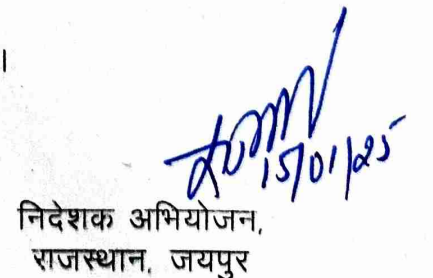 ।
15/01/25
निदेशक अभियोजन,
राजस्थान, जयपुर